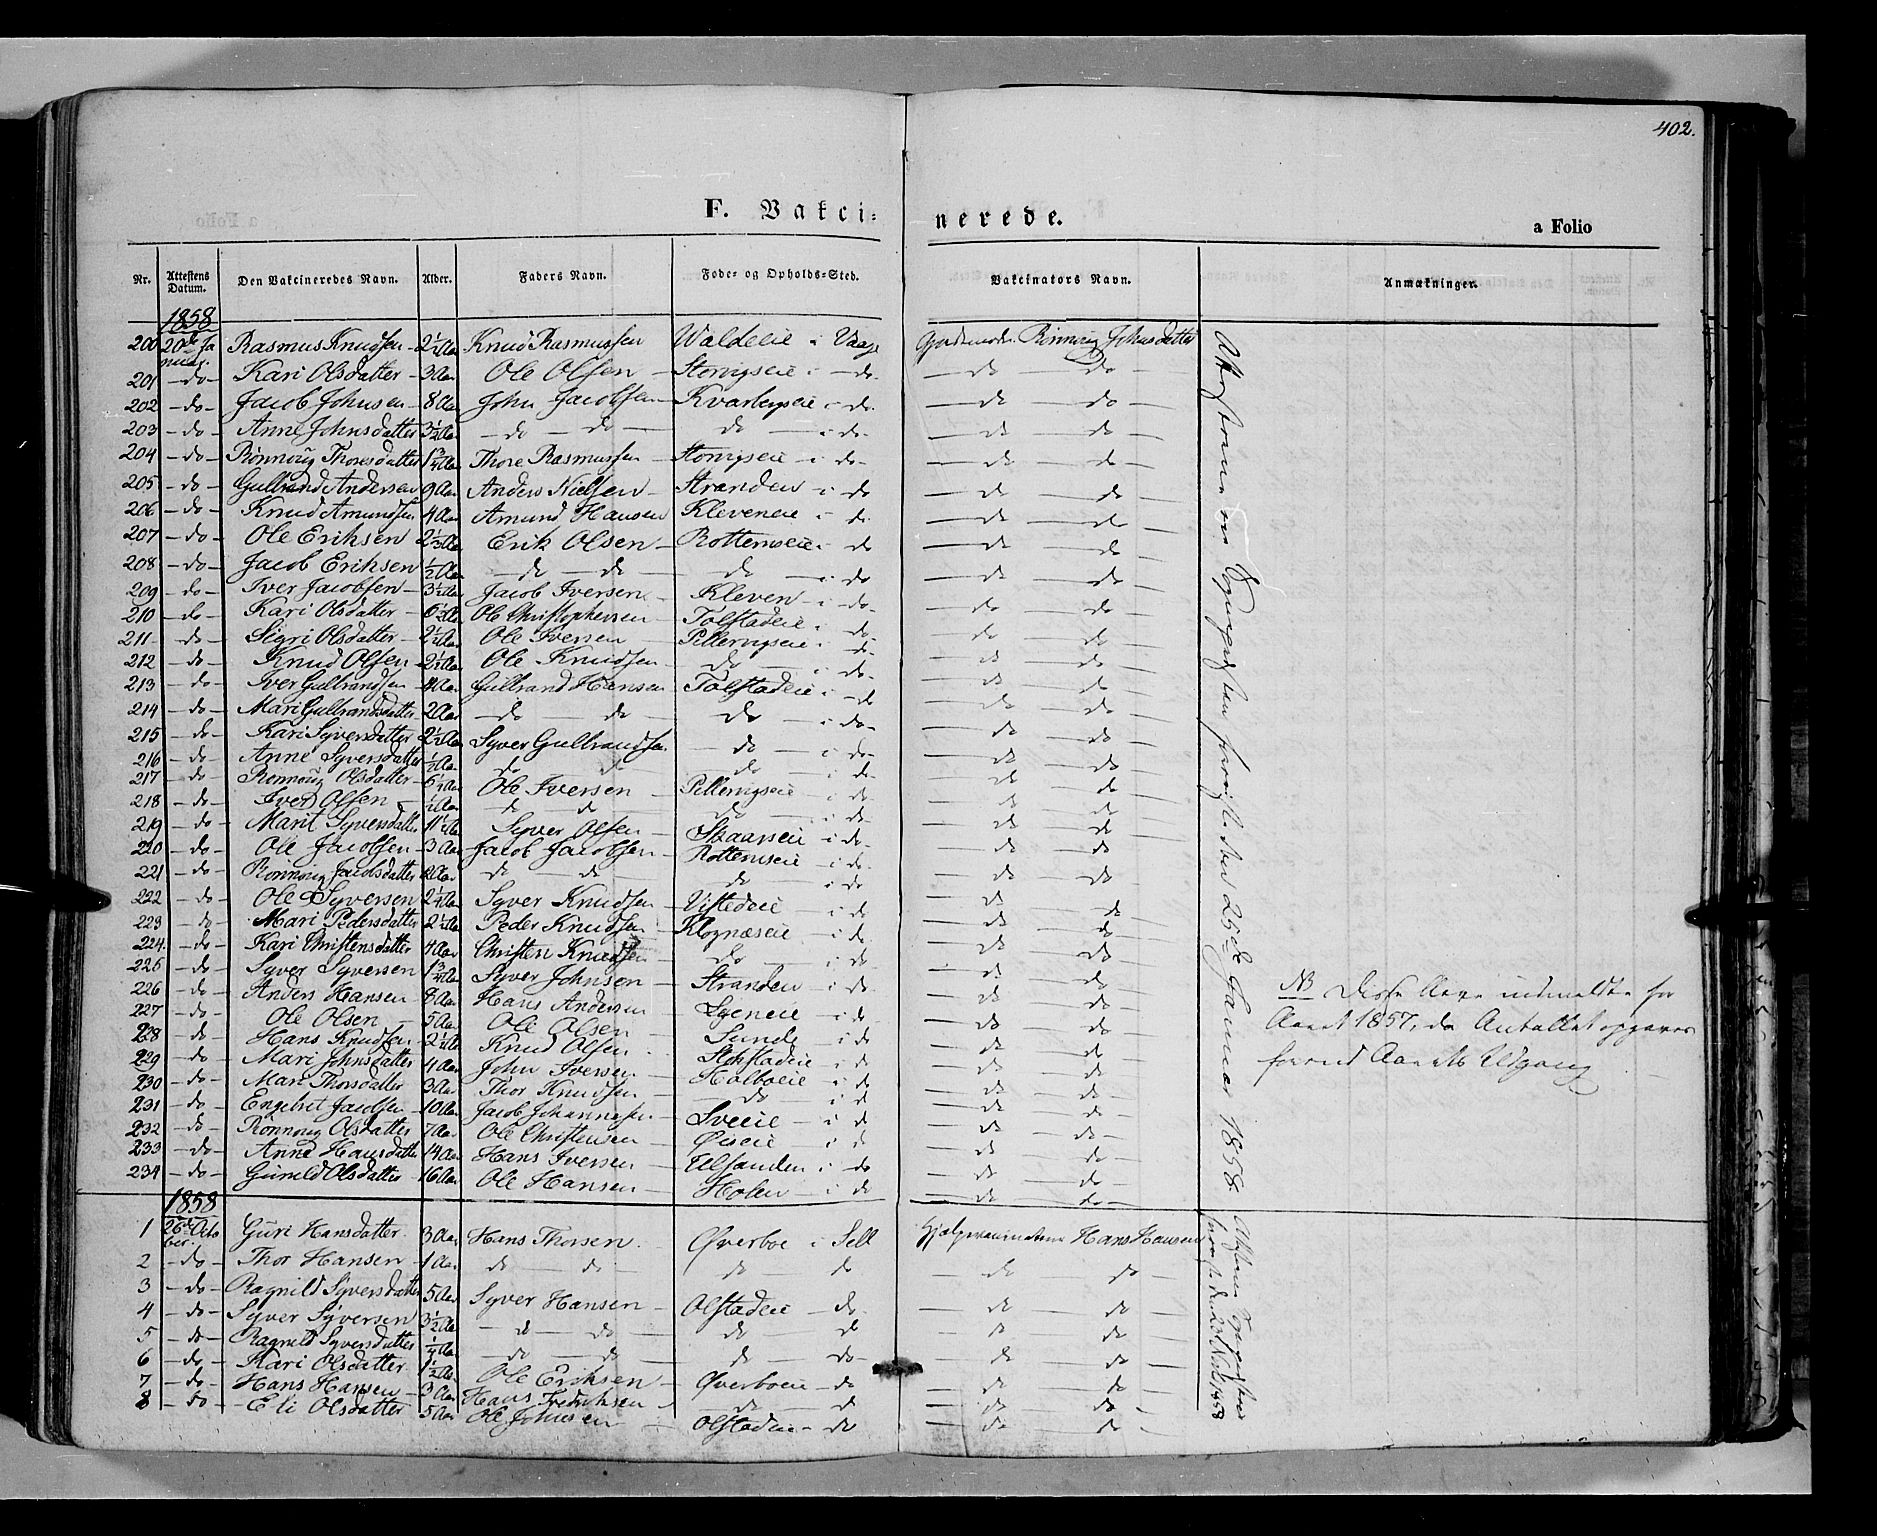 402.
F. Vakcinerede.
a Folio
Nr. Attestens Datum. Den Vakcineredes Navn. Alder. Faders Navn. Føde- og Opholds-Sted. Vakcinators Navn. Anmærkninger.
1858
200 20de Januar. Rasmus Knudsen 2½ Aar Knud Rasmussen Waldeie i Vaage Gjordemoder Rønnoug Johnsdatter
201 - do - Kari Olsdatter 3 Aar Ole Olsen Storvigseie i do do do
202 - do - Jacob Johnsen 8 Aar John Jacobsen Kvarbergseie i do do do
203 - do - Anne Johnsdatter 3½ Aar do do do i do do do
204 - do - Rønnoug Thoresdatter 1¾ Aar Thore Rasmussen Storvigseie i do do do
205 - do - Gulbrand Andersen 9 Aar Anders Nielsen Stranden i do do do
206 - do - Knud Amundsen 4 Aar Amund Hansen Kleveneie i do do do
207 - do - Ole Eriksen Erik Olsen Rottemseie i do do do
208 - do - Jacob Eriksen ½ Aar do do do i do do do
209 do Iver Jacobsen Jacob Iversen Kleven i do do do
210 do Kari Olsdatter Ole Christophersen Tolstadeie i do do do
211 do Sigri Olsdatter Ole Iversen Pillervigseie i do do do
212 - do Knud Olsen Ole Knudsen do i do do do
213 - do Iver Gulbrandsen 4 Aar Gulbrand Hansen Tolstadeie i do do do
214 - do - Mari Gulbrandsdatter 2 Aar do do do i do do do
215 - do Kari Syversdatter Syver Gulbrandsen do i do do do
216 - do Anne Syversdatter ½ Aar do do do i do do do
217 - do Rønnoug Olsdatter Ole Iversen Pillervigseie i do do do
218 - do - Iver Olsen do do do i do do do
219 - do - Marit Syversdatter Syver Olsen Skaarseie i do do do
220 - do - Ole Jacobsen 3 Aar Jacob Jacobsen Rottemseie i do do do
221 - do - Rønnoug Jacobsdatter do do do i do do do
222 - do Ole Syversen 2¼ Aar Syver Knudsen Vistedeie i do do do
223 do Mari Pedersdatter Peder Knudsen Klognæseie i do do do
224. - do Kari Christensdatter 4 Aar Christen Knudsen do i do do do
225 - do - Syver Syversen 1¾ Aar Syver Johnsen Stranden i do do do
226 - do Anders Hansen 8 Aar Hans Andersen i do do do
227 - do - Ole Olsen 5 Aar Ole Olsen Sunde i do do do
228 - do Hans Knudsen Knud Olsen i do do do
229 - do - Mari Johnsdatter 4 Aar John Iversen Holboeie i do do do
230 - do Mari Thorsdatter 3 Aar Thor Knudsen do i do do do
231 - do - Engebret Jacobsen 10 Aar Jacob Johannesen Sveeie i do do do
232 - do Rønnoug Olsdatter 7 Aar Ole Christensen Øieeie i do do do
233 - do - Anne Hansdatter 14 Aar Hans Iversen Ulsanden i do do do
234 - do - Gunild Olsdatter 16 Aar Ole Hansen Holen i do do do
Attesterne fra Sognepresten forevist den 25de Januar 1858.
NB Disse ere indmeldte for
Aaret 1857, da Antallet opgaves
forend Aarets Udgang
1858
1 26de October. Guri Hansdatter 3 Aar Hans Thorsen Øverboe i Sell Hjælpevaccinateur Hans Hansen
2 - do - Thor Hansen 1 Aar do do do do do do
3 - do - Ragnild Syversdatter 5 Aar Syver Hansen Olstadeie do do do
4 - do - Syver Syversen 3½ Aar do do do do do do
5 - do - Ragnild Syversdatter do do do do do do
6 - do - Kari Olsdatter Ole Eriksen Øverboeie do do do
7 - do - Hans Hansen 3 Aar Hans Fredriksen do do do do
8 - do - Eli Olsdatter 5 Aar Ole Johnsen Olstadeie do do do